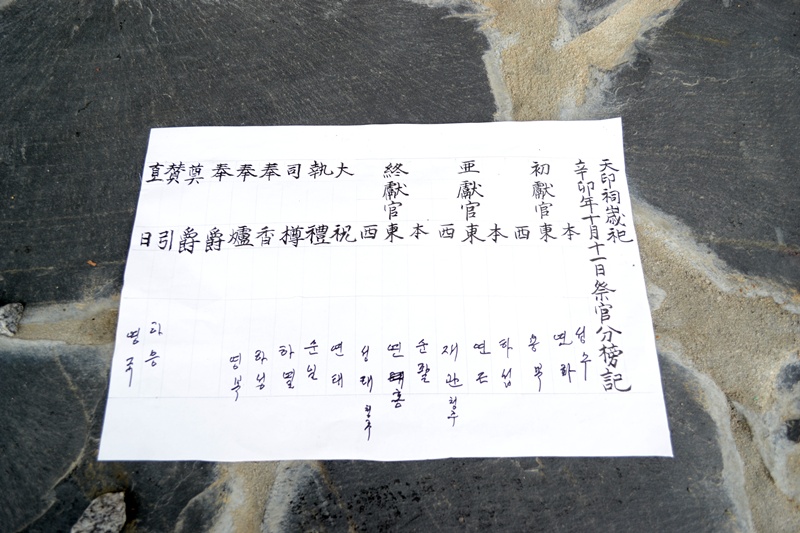 天印祠歲祀
辛卯年十月十一日祭官分榜記
初獻官 本 성수
東 연하
西 용복
亞獻官 本 하섭
東
西 재관 형주
終獻官 本 순팔
東 연홍
西 성태 형주
大祝 연태
執禮
司樽 하열
奉香 하성
奉爐 영복
奉爵
奠爵
贊引 하응
直日 영국